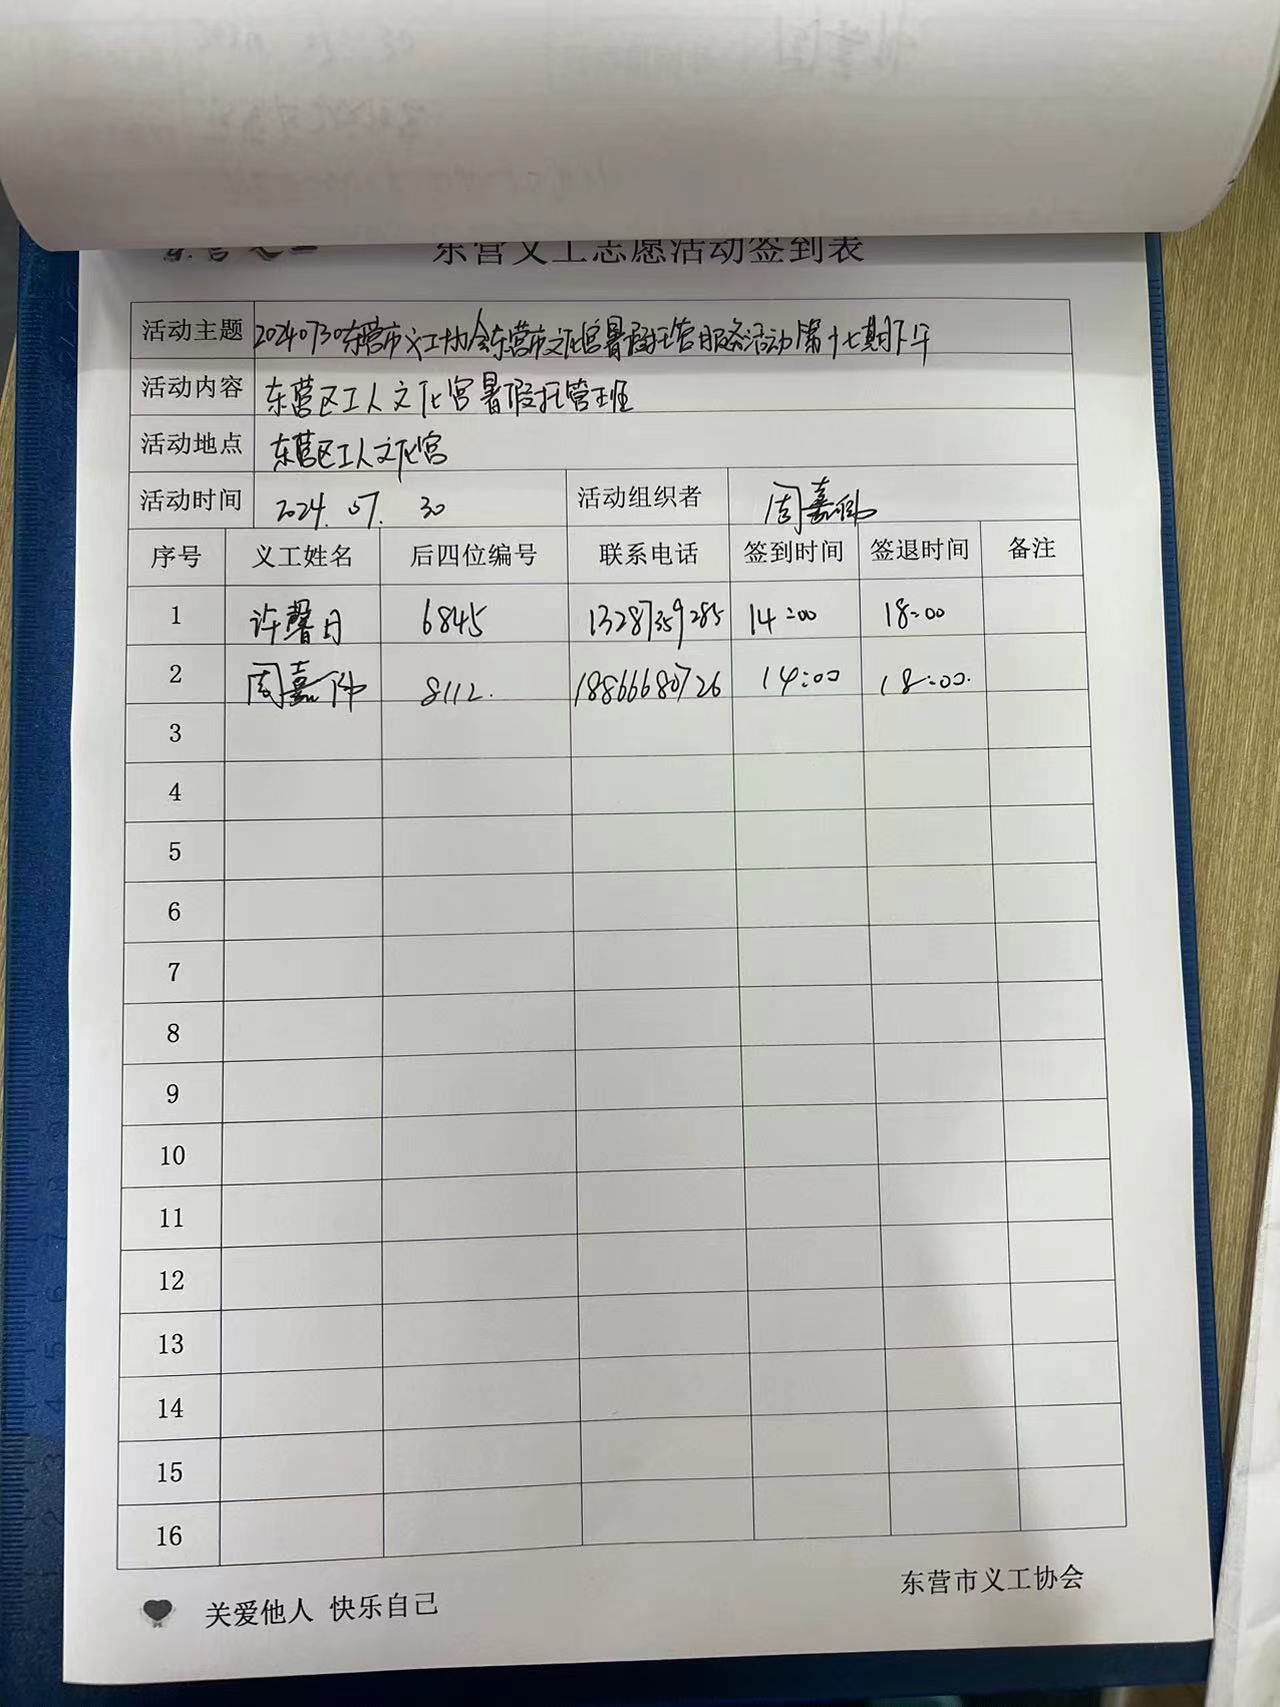 东营义工志愿活动签到表
活动主题 20240730东营市义工协会东营市文化宫暑假托管服务活动第十七期下午
活动内容 东营区工人文化宫暑假托管班
活动地点 东营区工人文化宫
活动时间 2024.07.30 活动组织者 周嘉
序号 义工姓名 后四位编号 联系电话 签到时间 签退时间 备注
1 许馨月 6845 13287359285 14:00 18:00
2 周嘉 8112. 18866680726 14:00 18:00.
3
4
5
6
7
8
9
10
11
12
13
14
15
16
东营市义工协会
关爱他人 快乐自己